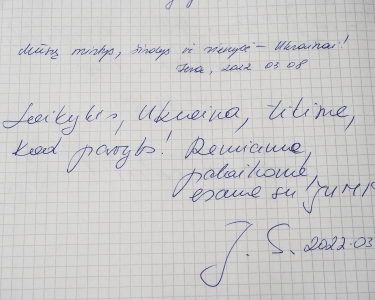 Mūsų mintys, širdys ir vienybė – Ukrainai!
Ieva, 2022 03 08
Laikykis, Ukraina, tikime,
kad pavyks! Remiame,
palaikome,
esame su JUMIS
J. S. 2022.03